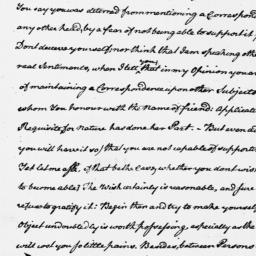 You say you was deterred from mentioning a Correspond
any other head, by a fear of not being able to support it,
Dont deceive yourself nor think that I am speaking othe
real Sentiments, when I tell you that in my Opinion you ar
of maintaining a Correspondence upon other Subjects
whom You honour with the name of friend: Applicat
Requisite for Nature has done her Part. - But even ad
you will have it so) that you are not capable of support
Yet let me ask, if that be the case, whether you dont wis
to become able? The Wish certainly is reasonable, and sure
refuse to gratify it: Begin then and try to make yoursel
Object undoubtedly is worth possessing, especially as the
will cost you so little pains. Besides, between Persons